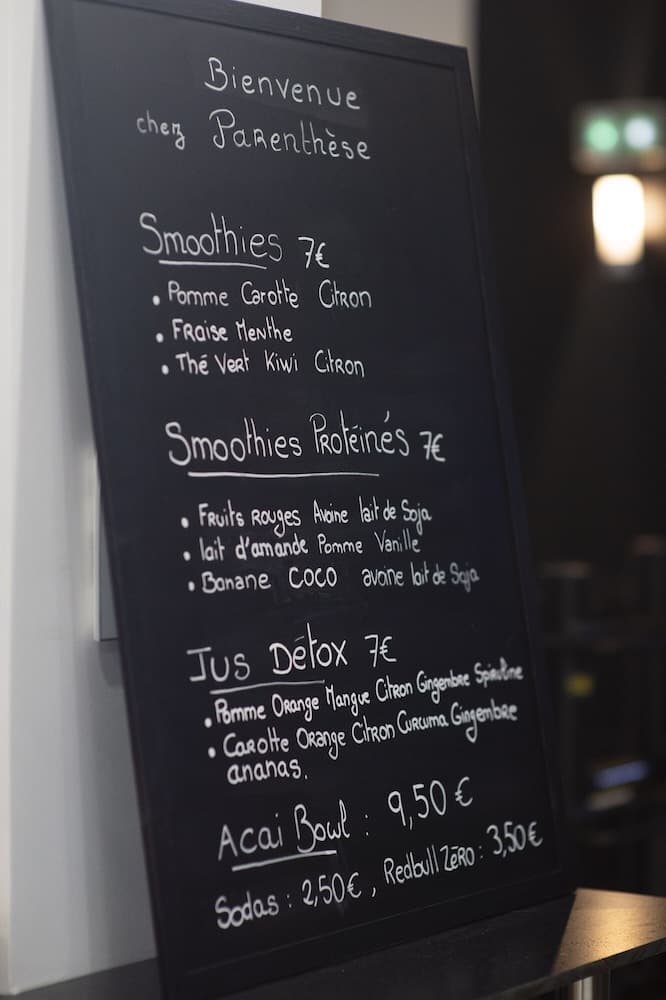 Bienvenue
chez Parenthèse
Smoothies 7€
• Pomme Carotte Citron
• Fraise Menthe
• Thé Vert Kiwi Citron
Smoothies Protéinés 7€
• Fruits Rouges Avoine lait de Soja
• lait d'amande Pomme Vanille
• Banane COCO avoine lait de Soja
Jus Détox 7€
• Pomme Orange Mangue Citron Gingembre Spiruline
• Carotte Orange Citron Curcuma Gingembre
ananas.
Acai Bowl : 9,50€
Sodas : 2,50€, Redbull Zēro : 3,50€